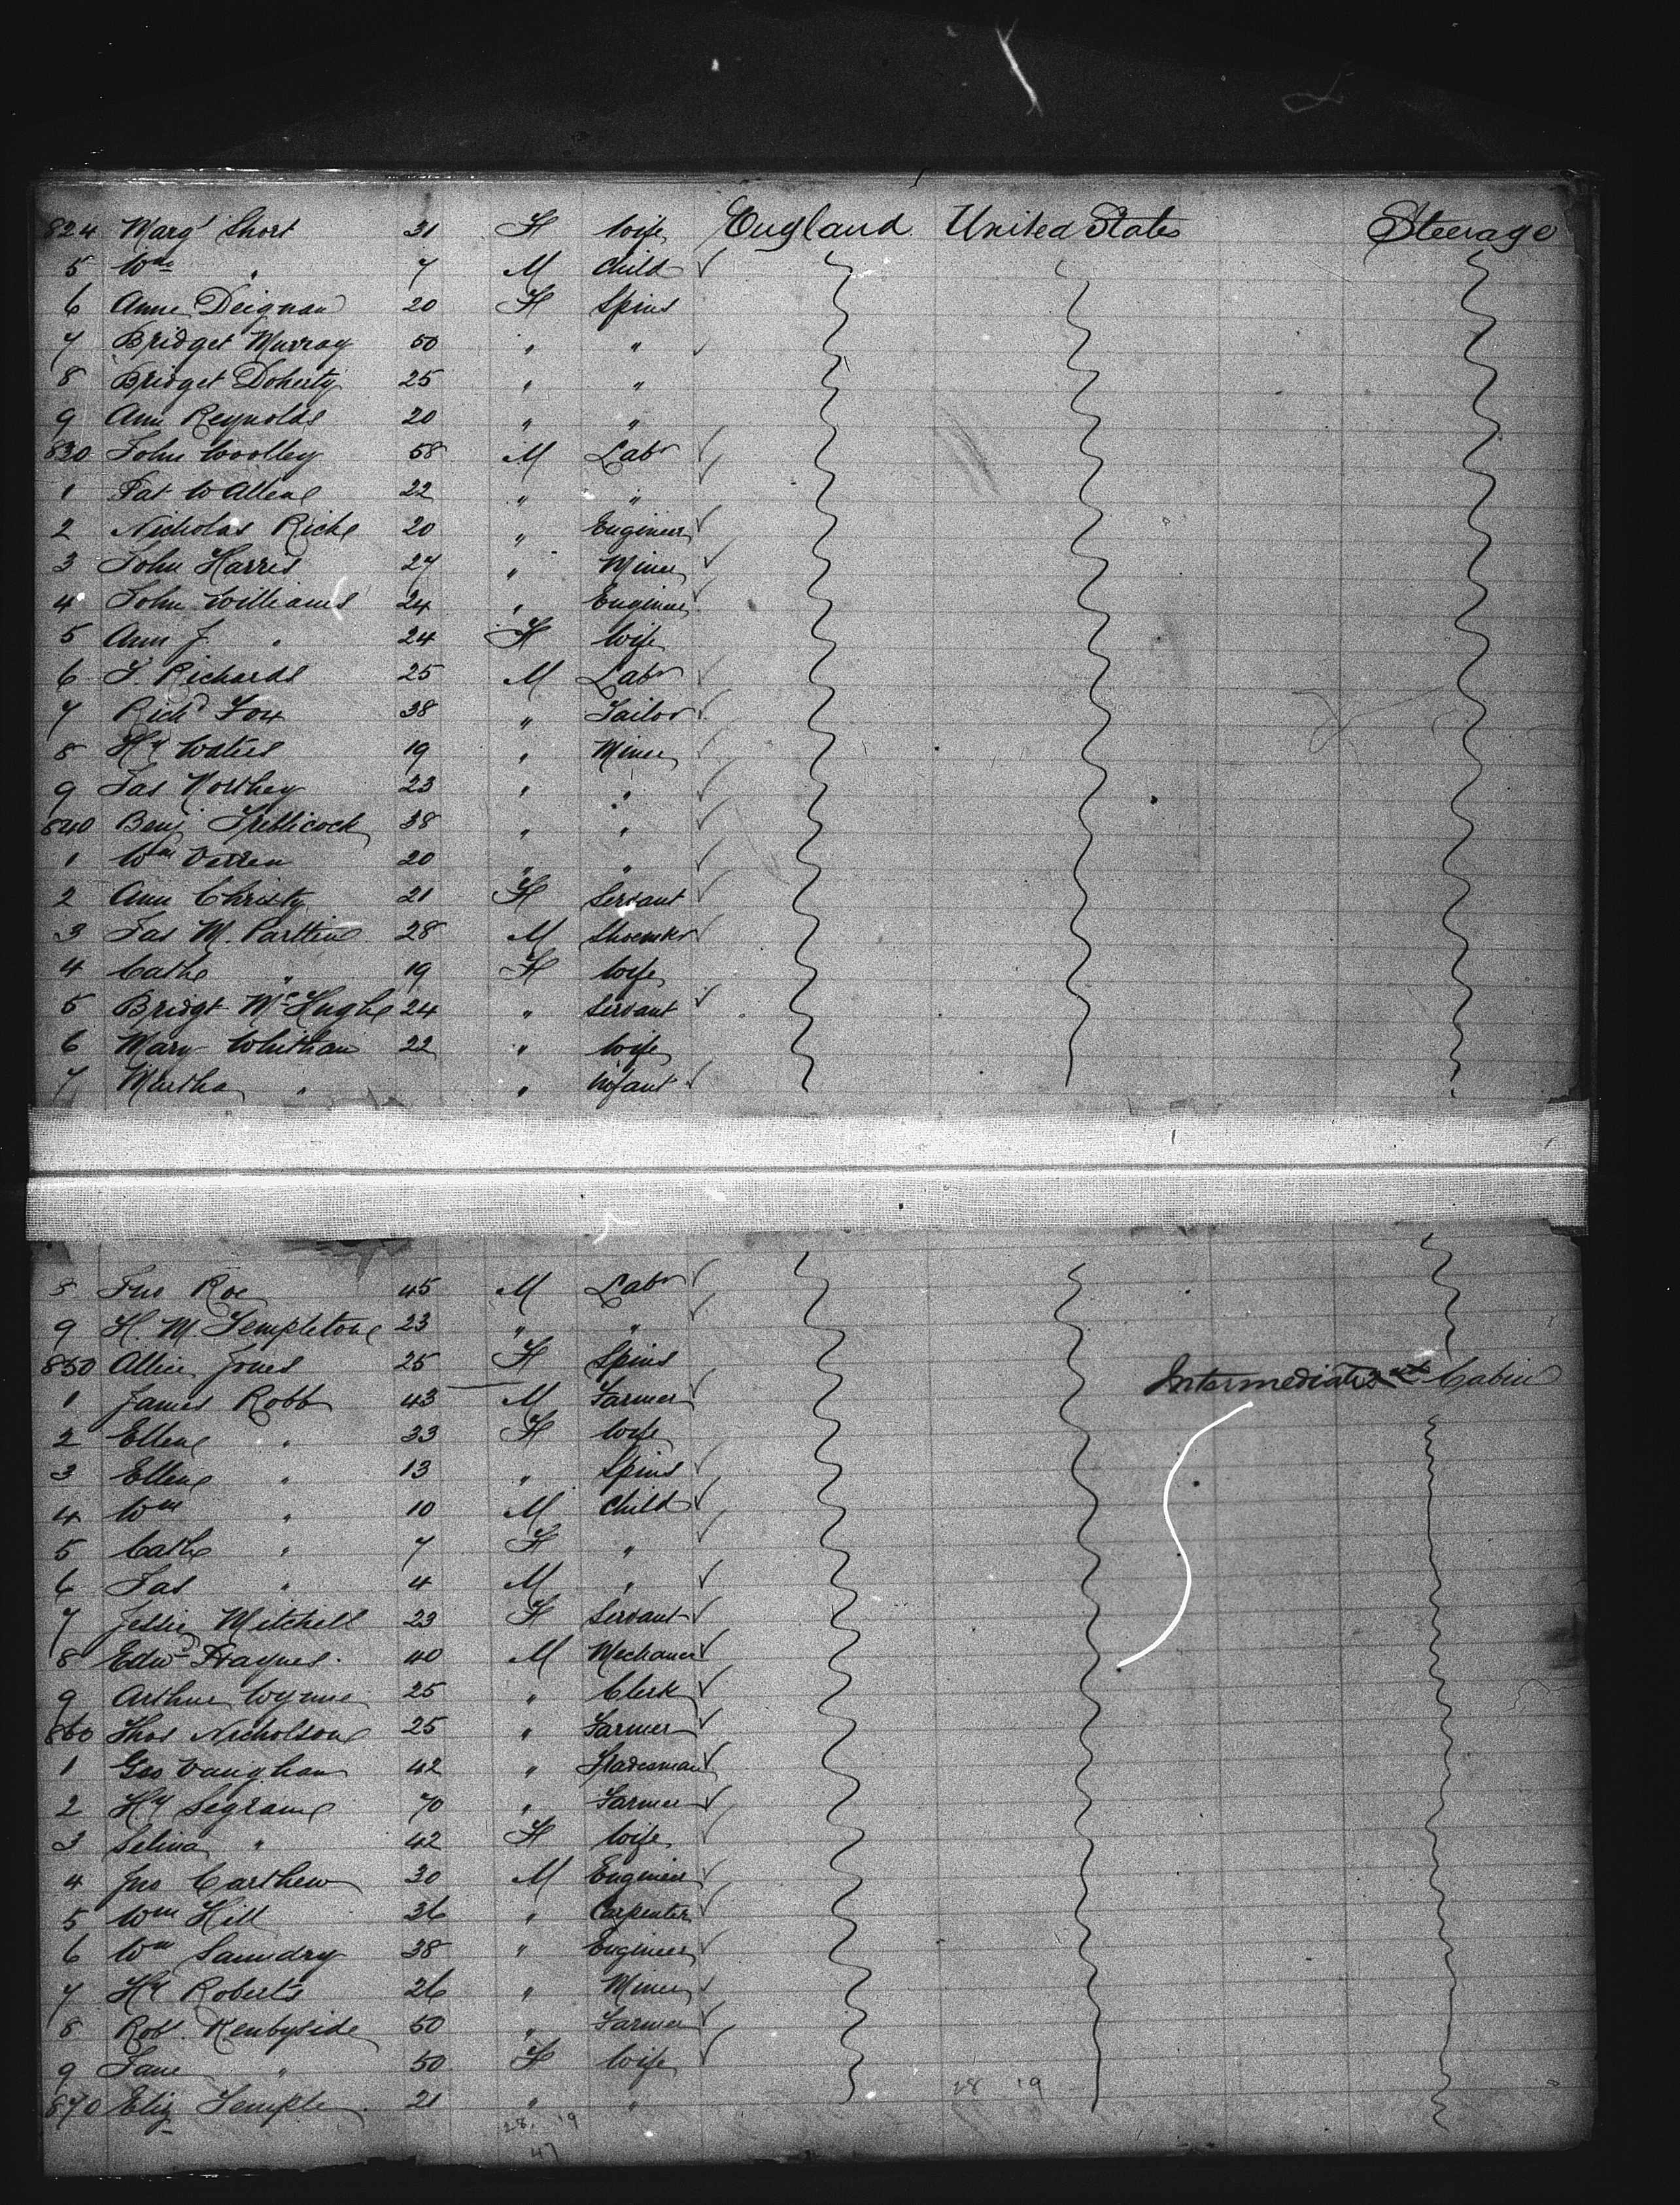 824 Margt Short 31 F Wife England United States Steerage
5 Wm " 7 M Child ✓
6 Anne Deignan 20 F Spins
7 Bridget Murray 50 " " ✓
8 Bridget Doherty 25 " "
9 Ann Reynolds 20 " "
830 John Woolley 58 M Labr ✓
1 Pat W Allen 22 " " ✓
2 Nicholas Rich 20 " Engineer ✓
3 John Harris 27 " Miner ✓
4 John Williams 24 " Engineer ✓
5 Ann J. " 24 F Wife
6 J. Richards 25 M Labr ✓
7 Richd Fox 38 " Tailor ✓
8 Hy Waters 19 " Miner ✓
9 Jas Northey 23 " " ✓
840 Benj Treblicock 38 " " ✓
1 Wm 20 " " ✓
2 Ann Christy 21 F Servant ✓
3 Jas M. Parttin 28 M Shoemkr ✓
4 Cathe " 19 F Wife
5 Bridgt McHugh 24 " Servant ✓
6 Mary Whitham 22 " Wife
7 Martha " " Infant ✓
8 Jno Roe 45 M Labr ✓
9 H. M Templeton 23 " " ✓
850 Allice Jones 25 F Spins ✓ Intermediate Cabin
1 James Robb 43 M Farmer ✓
2 Ellen " 33 F Wife
3 Ellen " 13 " Spins ✓
4 Wm " 10 M Child ✓
5 Cathe " 7 F " ✓
6 Jas " 4 M " ✓
7 Jessie Mitchell 23 F Servant ✓
8 Edwd Haynes 40 M ✓
9 Arthur Wynne 25 " Clerk ✓
860 Thos Nicholson 25 " Farmer ✓
1 Geo Vaughan 42 " Tradesman ✓
2 Hy Segram 70 " Farmer ✓
3 Selina " 42 F Wife ✓
4 Jno Carthew 30 M Engineer ✓
5 Wm Hill 36 " Carpenter ✓
6 Wm Saundry 38 " Engineer ✓
7 Hy Roberts 26 " Miner ✓
8 Robt. Kenbyside 50 " Farmer ✓
9 Jane " 50 F Wife ✓
870 Eliz Temple 21 " "
28 19
28. 19
47